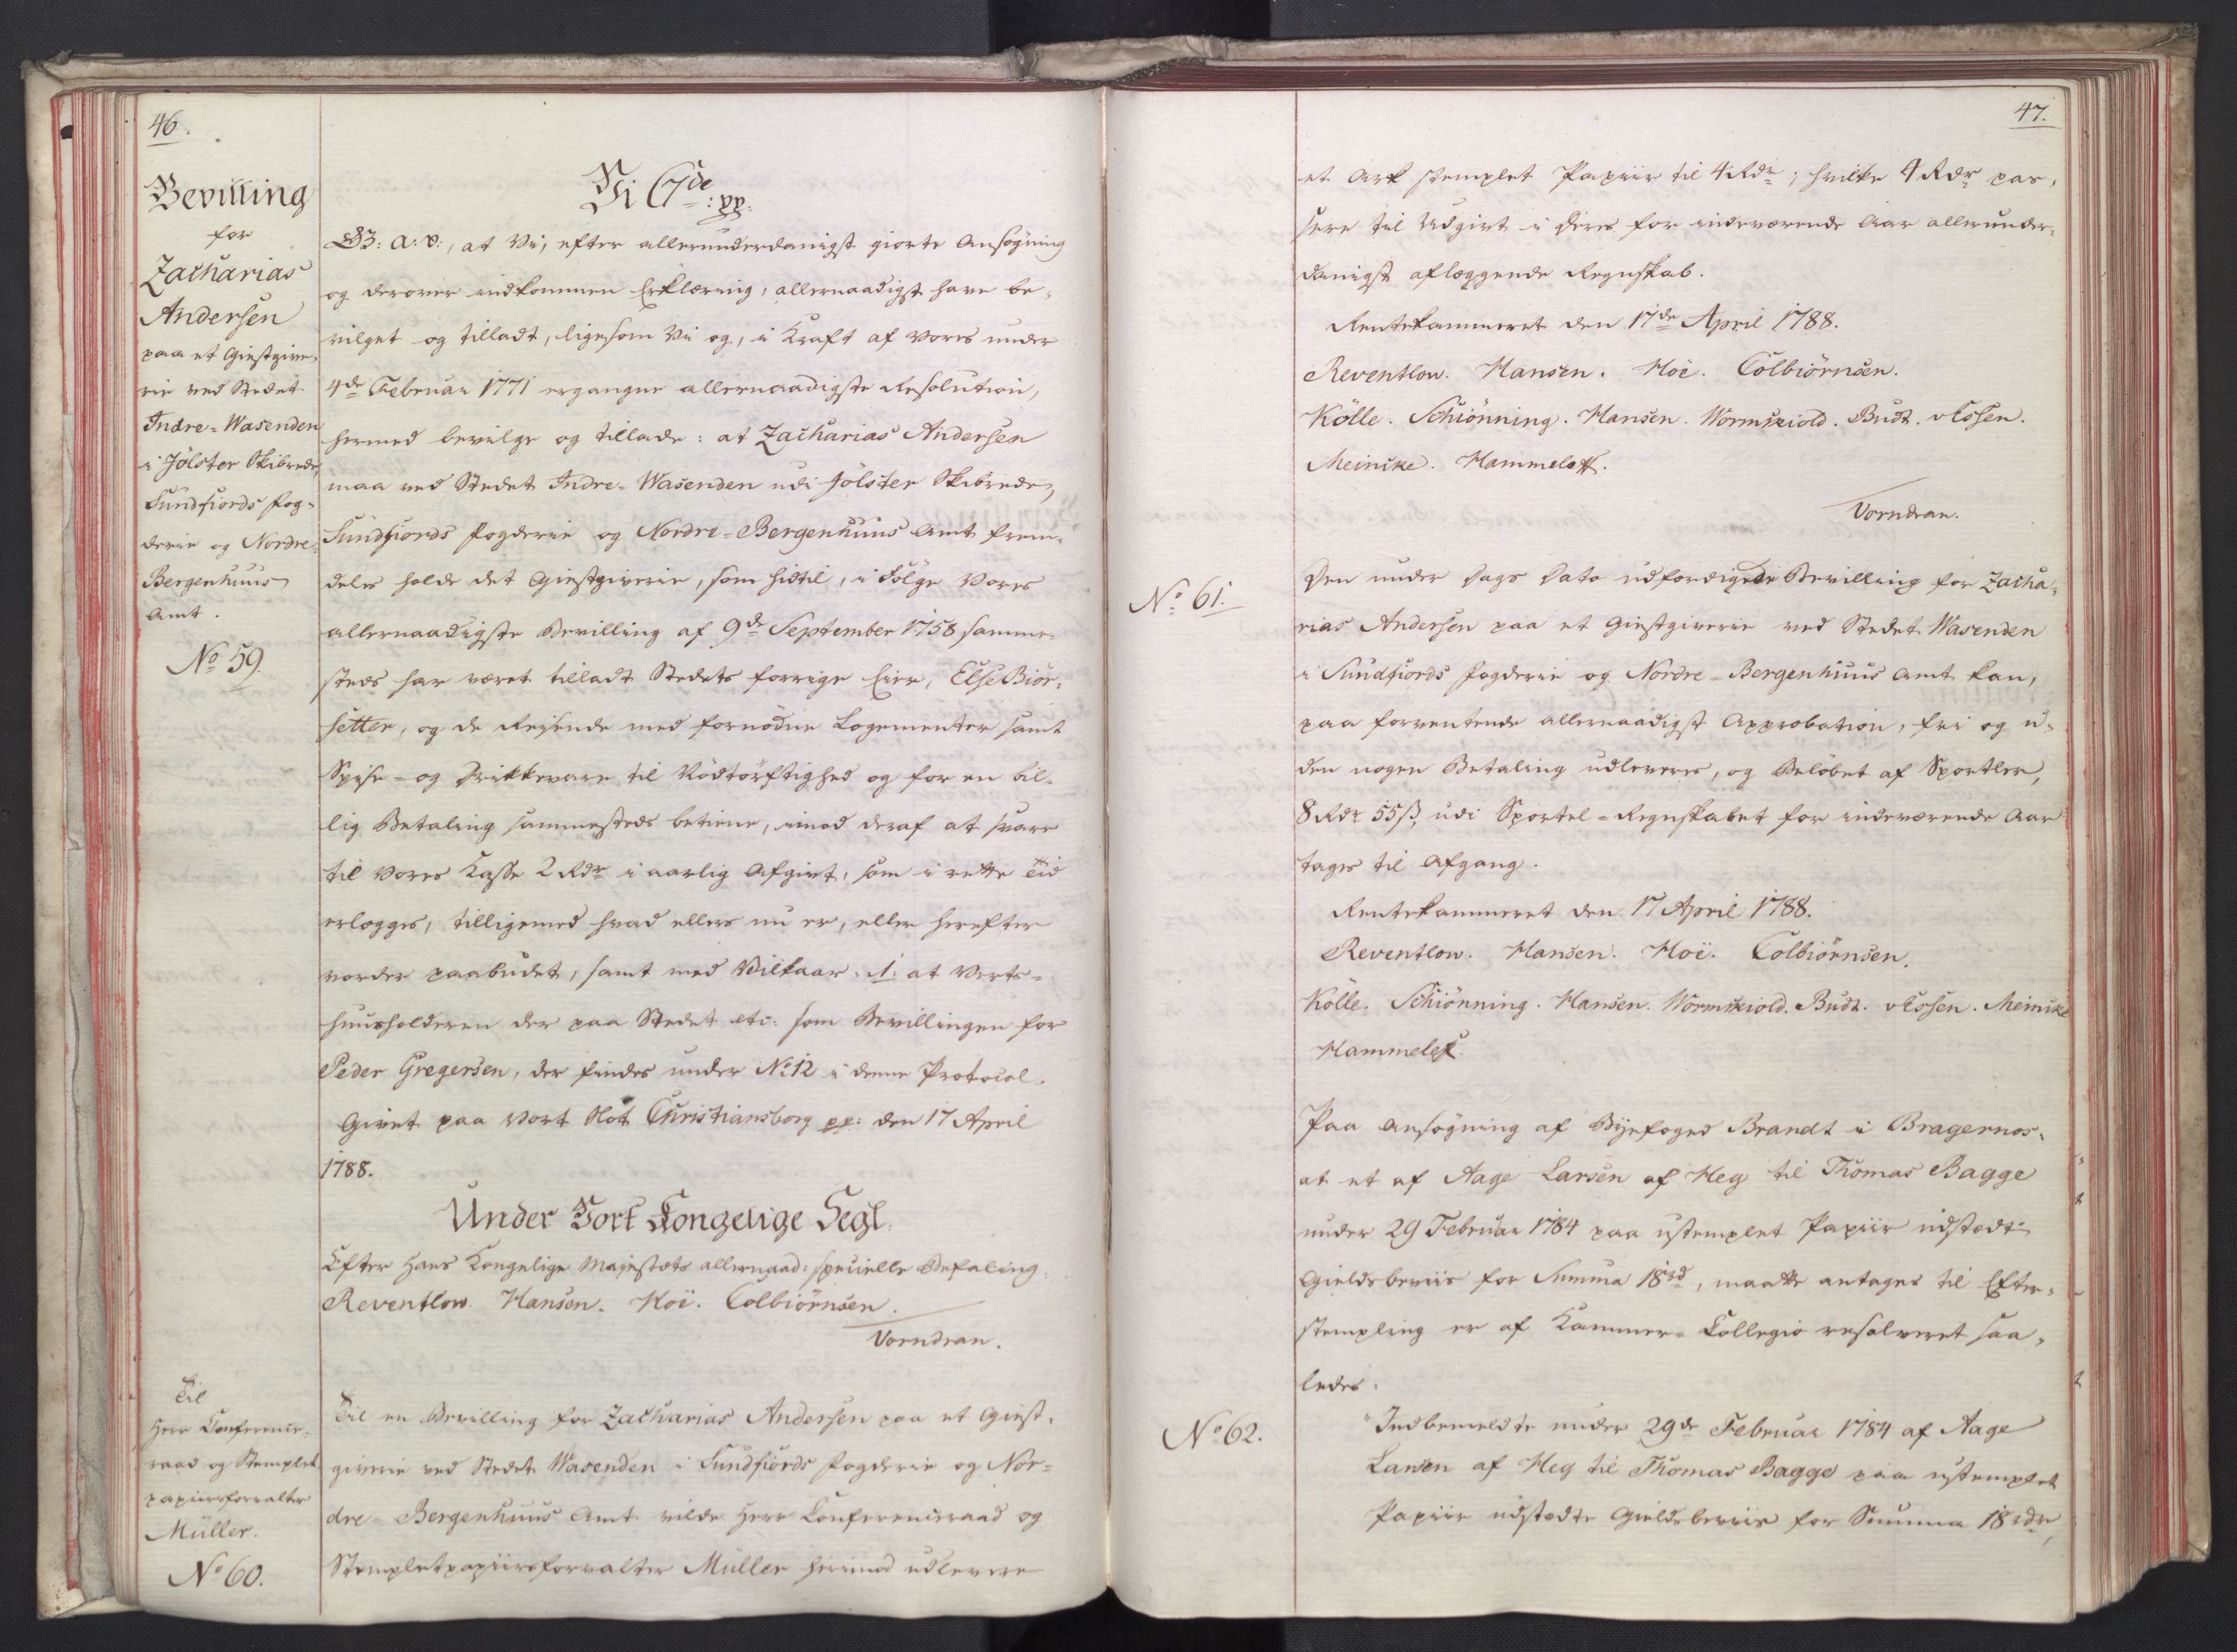 46.
Bevilling
for
Zacharias
Andersen
paa et Giestgive-
rie ved Stedet
Indre-Wasenden
i Jölster Skibrede,
Sundfiords Fog-
derie og Nordre-
Bergenhuus
Amt.
No 59.
Vi C 7de: pp:
G: A: V:, at Vi, efter allerunderdanigst giorte Ansøgning
og derover indkommen Erklæring, allernaadigst have be-
vilget og tilladt, ligesom Vi og, i Kraft af Vores under
4de Februar 1771 ergangne allernaadigste Resolution,
hermed bevilge og tillade: at Zacharias Andersen
maa ved Stedet Indre-Wasenden udi Jölster Skibrede,
Sundfiords Fogderie og Nordre-Bergenhuus Amt frem-
deles holde det Giestgiverie, som hidtil, i Følge Vores
allernaadigste Bevilling af 9de September 1758 samme-
steds har været tilladt Stedets forrige Eier, Else Biör-
setter, og de Reisende med fornødne Logementer samt
Spise- og Drikkevare til Nødtørftighed og for en bil-
lig Betaling sammesteds betiene, imod deraf at svare
til Vores Kasse 2 Rdr i aarlig Afgivt, som i rette Tid
erlægges, tilligemed hvad ellers nu er, eller herefter
vorder paabudet, samt med Vilkaar: 1: at Verts-
huusholderen der paa Stedet etc: som Bevillingen for
Peder Gregersen, der findes under No 12 i denne Protocol.
Givet paa Vort Slot Christiansborg pp: den 17 April
1788.
Under Vort Kongelige Segl.
Efter Hans Kongelige Majestæts allernaad: specielle Befaling.
Reventlow. Hansen. Hoë. Colbiörnsen.
Vorndran.
Til
Herr Conferenz-
raad og Stemplet
papiirsforvalter
Müller.
No 60.
Til en Bevilling for Zacharias Andersen paa et Giest-
giverie ved Stedet Wasenden i Sundfiords Fogderie og Nor-
dre-Bergenhuus Amt vilde Herr Conferenzraad og
Stempletpapiirsforvalter Müller hermed udlevere
47.
et Ark stemplet Papiir til 4 Rdr; hvilke 4 Rdr pas-
sere til Udgivt i Deres for indeværende Aar allerunder-
danigst aflæggende Regnskab.
Rentekammeret den 17de April 1788.
Reventlow. Hansen. Hoë. Colbiörnsen.
Kölle. Schiönning. Hansen. Wormskiold. Budt. v Essen.
Meincke. Hammeleff.
Vorndran.
No 61.
Den under Dags Dato udfærdigede Bevilling for Zacha-
rias Andersen paa et Giestgiverie ved Stedet Wasenden
i Sundfiords Fogderie og Nordre-Bergenhuus Amt kan,
paa forventende allernaadigst Approbation, fri og u-
den nogen Betaling udleveres, og Beløbet af Sportler,
8 Rdr 55 ß, udi Sportel-Regnskabet for indeværende Aar
tages til Afgang.
Rentekammeret den 17 April 1788.
Reventlow. Hansen. Hoë. Colbiörnsen.
Kölle. Schiönning. Hansen. Wormskiold. Budt. v Essen. Meincke
Hammeleff.
Paa Ansøgning af Byefoged Brandt i Bragernæs,
at et af Aage Larsen af Heg til Thomas Bagge
under 29 Februar 1784 paa ustemplet Papiir udstædt
Gieldsbeviis for Summa 18 rd, maatte antages til Efter-
stempling er af Kammer-Collegio resolveret saa-
ledes:
No 62.
"Indbemeldte under 29de Februar 1784 af Aage
Larsen af Heg til Thomas Bagge paa ustemplet
Papiir udstædte Gieldsbeviis for Summa 18 rdr,